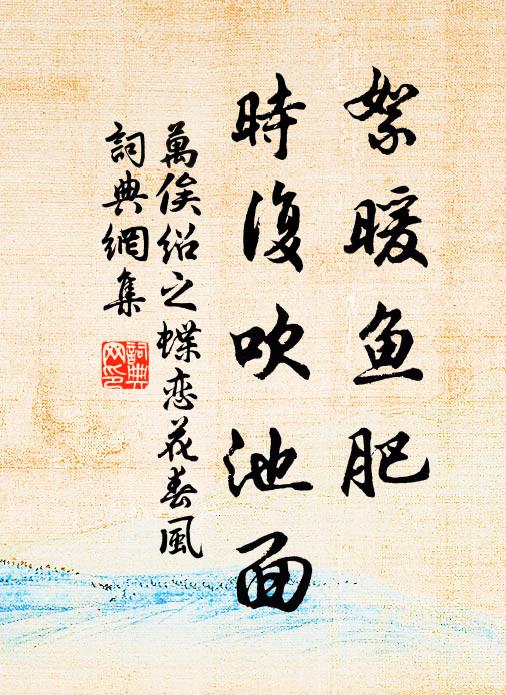 絮暖鱼肥
時復吹池面
萬俟绍之蝶恋花春風
詞典網集
詞典网印